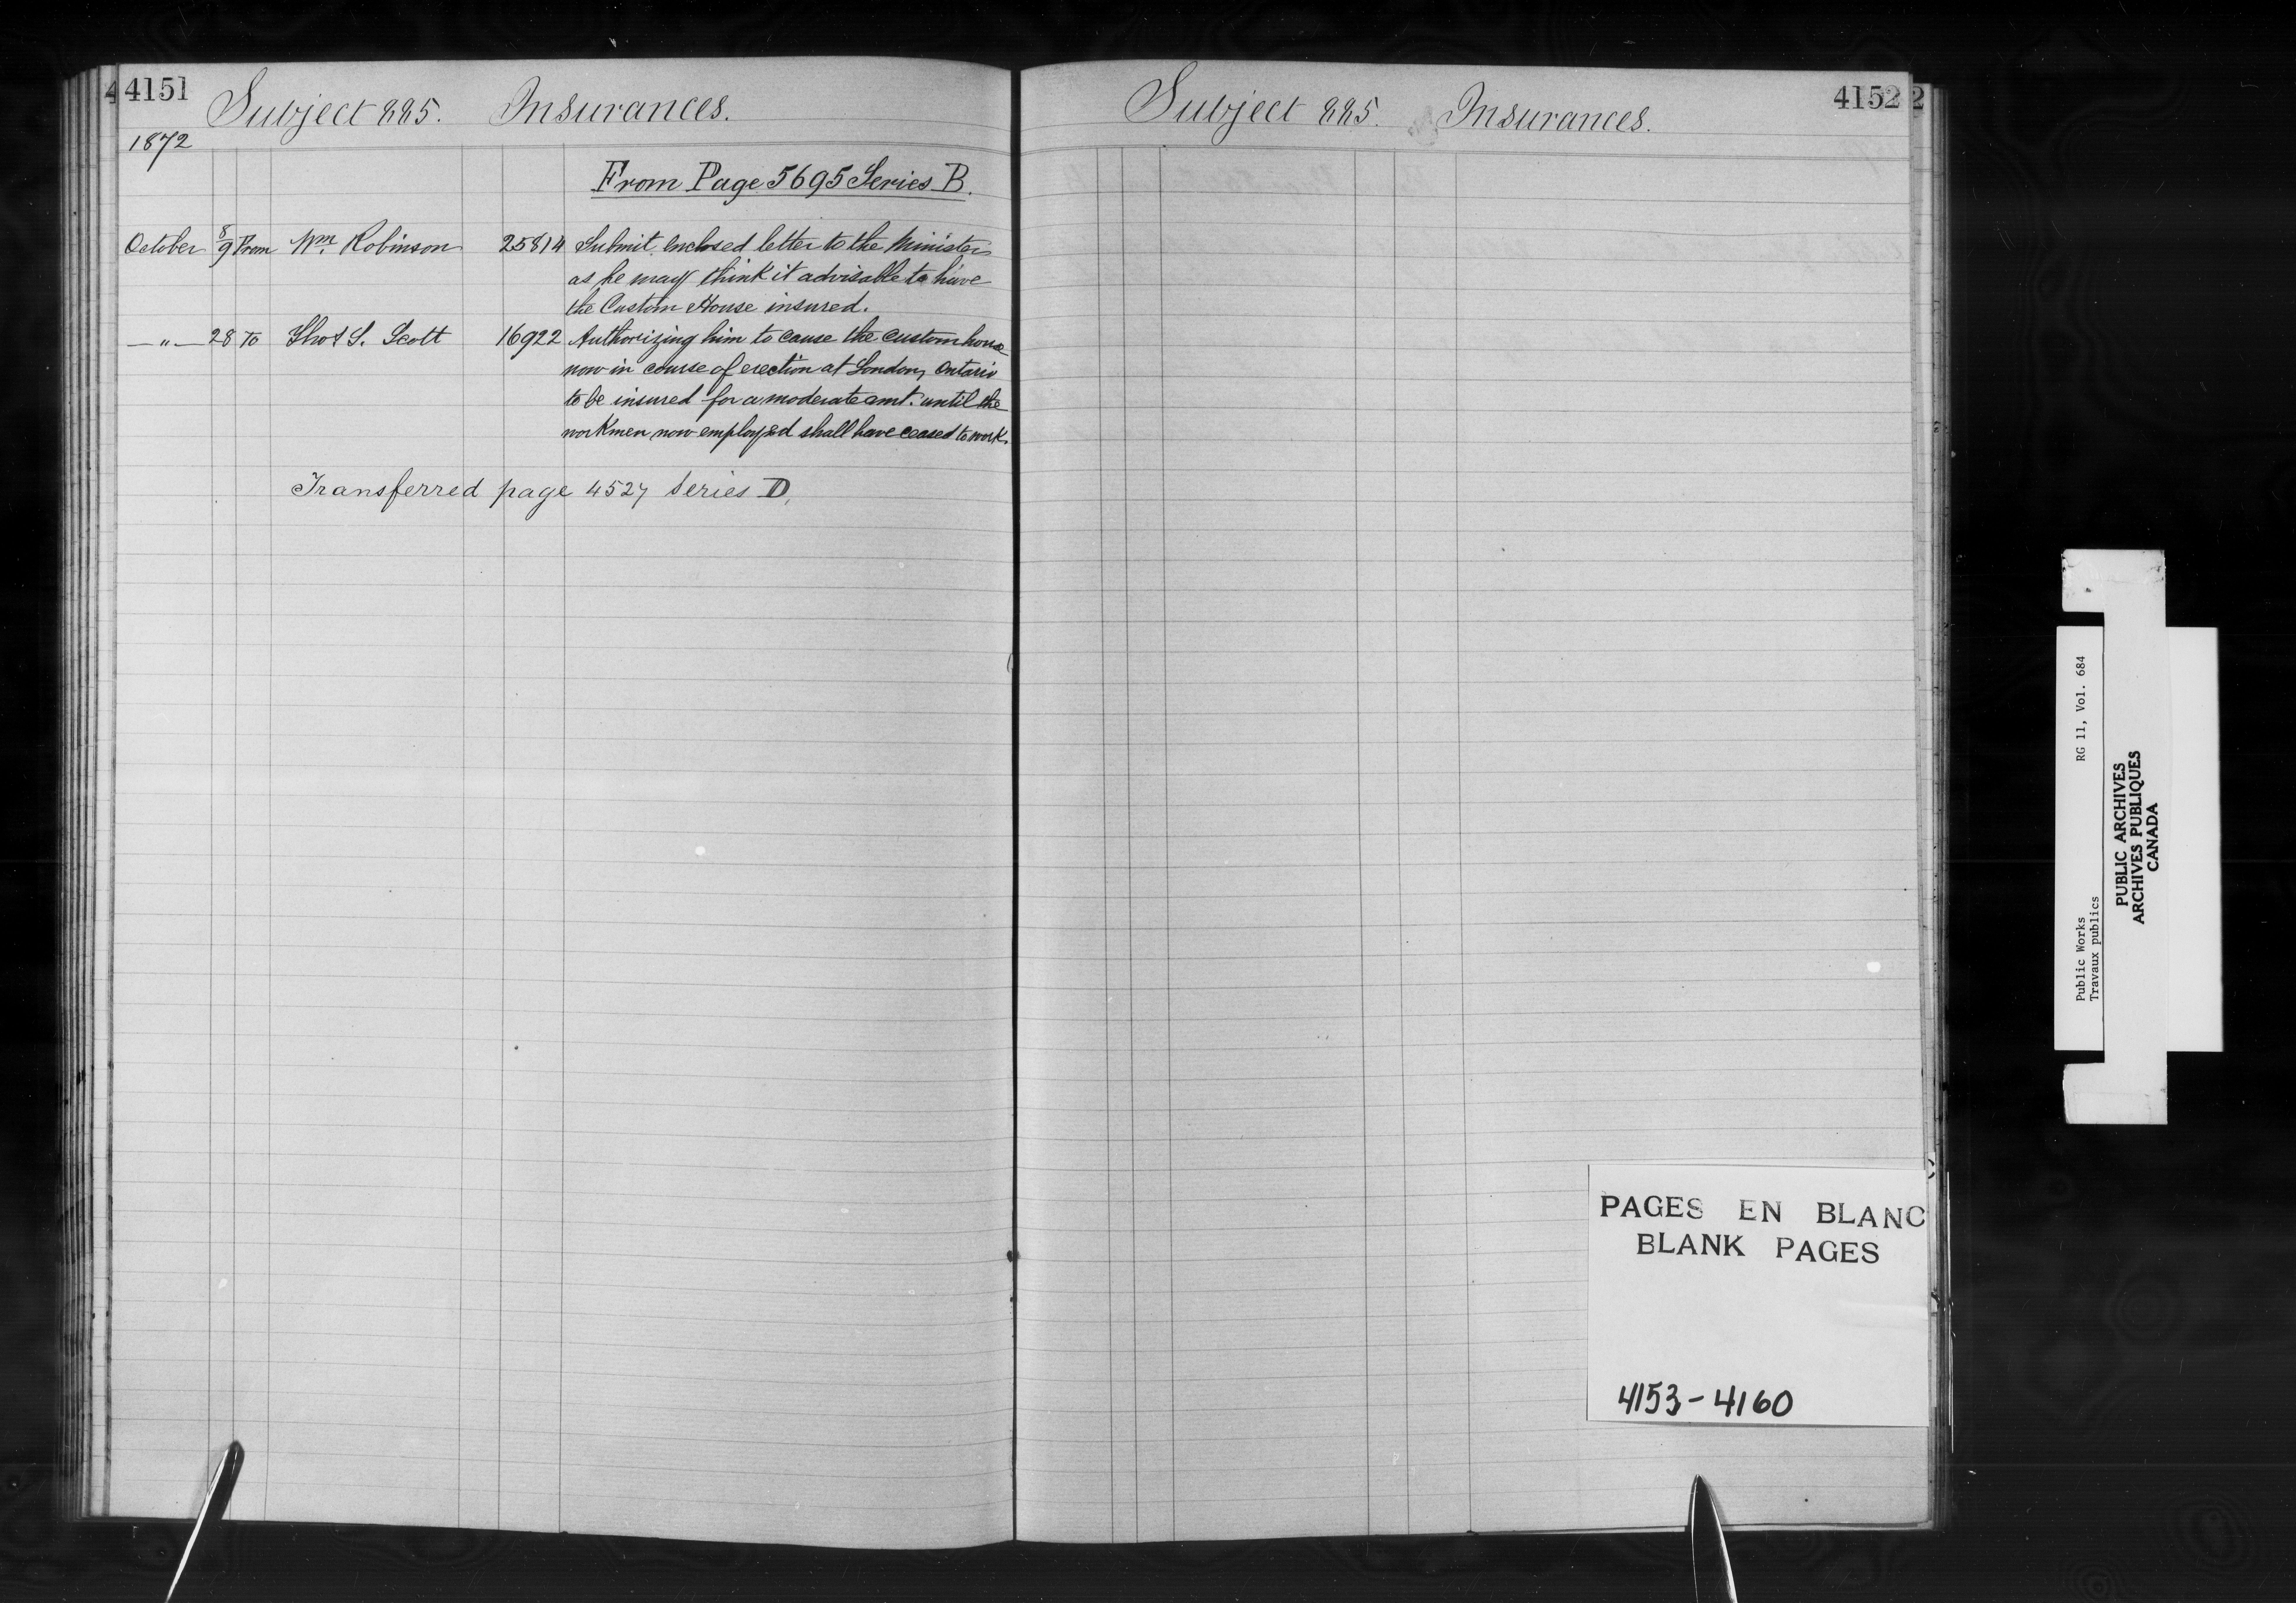 4151
Subject 885. Insurances.
1872
From Page 5695 Series B.
October 8/9 From Wm. Robinson 25814 Submit enclosed letter to the Minister
as he may think it advisable to have
the Custom House insured.
—"— 28 To Thos S. Scott 16922 Authorizing him to cause the custom house
now in course of erection at London, Ontario
to be insured for a moderate amt. until the
workmen now employed shall have ceased to work.
Transferred page 4527 Series D,
4152
Subject 885. Insurances.
PAGES EN BLANC
BLANK PAGES
4153-4160
Public Works RG 11, Vol. 684
Travaux publics
PUBLIC ARCHIVES
ARCHIVES PUBLIQUES
CANADA